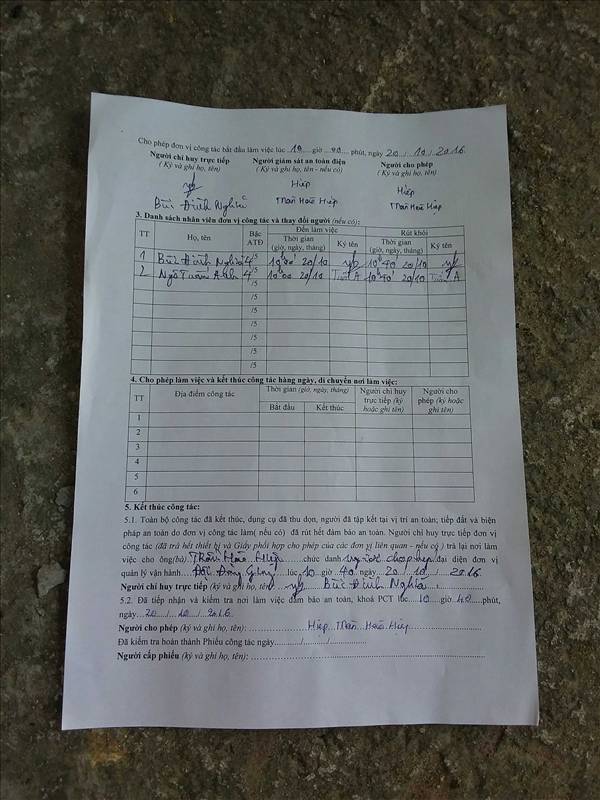 Cho phép đơn vị công tác bắt đầu làm việc lúc ...10... giờ ...00... phút, ngày 20 / 10 / 2016
Người chỉ huy trực tiếp Người giám sát an toàn điện Người cho phép
( Ký và ghi họ, tên) (Ký và ghi họ, tên - nếu có) ( Ký và ghi họ, tên)
Hiệp Hiệp
Bùi Đình Nghĩa Trần Hoà Hiệp Trần Hoà Hiệp
3. Danh sách nhân viên đơn vị công tác và thay đổi người (nếu có):
TT Họ, tên Bậc ATĐ Đến làm việc Rút khỏi
Thời gian (giờ, ngày, tháng) Ký tên Thời gian (giờ, ngày, tháng) Ký tên
1 Bùi Đình Nghĩa 4/5 10h00' 20/10 10h40' 20/10
2 Ngô Tuấn Anh 4/5 10h00 20/10 Tuấn A 10h40' 20/10 Tuấn A
/5
/5
/5
/5
/5
/5
4. Cho phép làm việc và kết thúc công tác hàng ngày, di chuyển nơi làm việc:
TT Địa điểm công tác Thời gian (giờ, ngày, tháng) Người chỉ huy trực tiếp (ký hoặc ghi tên) Người cho phép (ký hoặc ghi tên)
Bắt đầu Kết thúc
1
2
3
4
5
6
5. Kết thúc công tác:
5.1. Toàn bộ công tác đã kết thúc, dụng cụ đã thu dọn, người đã tập kết tại vị trí an toàn; tiếp đất và biện
pháp an toàn do đơn vị công tác làm( nếu có) đã rút hết đảm bảo an toàn. Người chỉ huy trực tiếp đơn vị
công tác (đã trả hết thiết bị và Giấy phối hợp cho phép của các đơn vị liên quan - nếu có ) trả lại nơi làm
việc cho ông(bà) Trần Hoà Hiệp chức danh người cho phép đại diện đơn vị
quản lý vận hành lúc 10 giờ 40 ngày 20 / 10 / 2016
Người chỉ huy trực tiếp (ký và ghi họ, tên) Bùi Đình Nghĩa
5.2. Đã tiếp nhận và kiểm tra nơi làm việc đảm bảo an toàn, khoá PCT lúc 10 giờ 40 phút,
ngày 20 / 10 / 2016
Người cho phép (ký và ghi họ, tên): Hiệp Trần Hoà Hiệp
Đã kiểm tra hoàn thành Phiếu công tác ngày....../....../......
Người cấp phiếu (ký và ghi họ, tên): ......